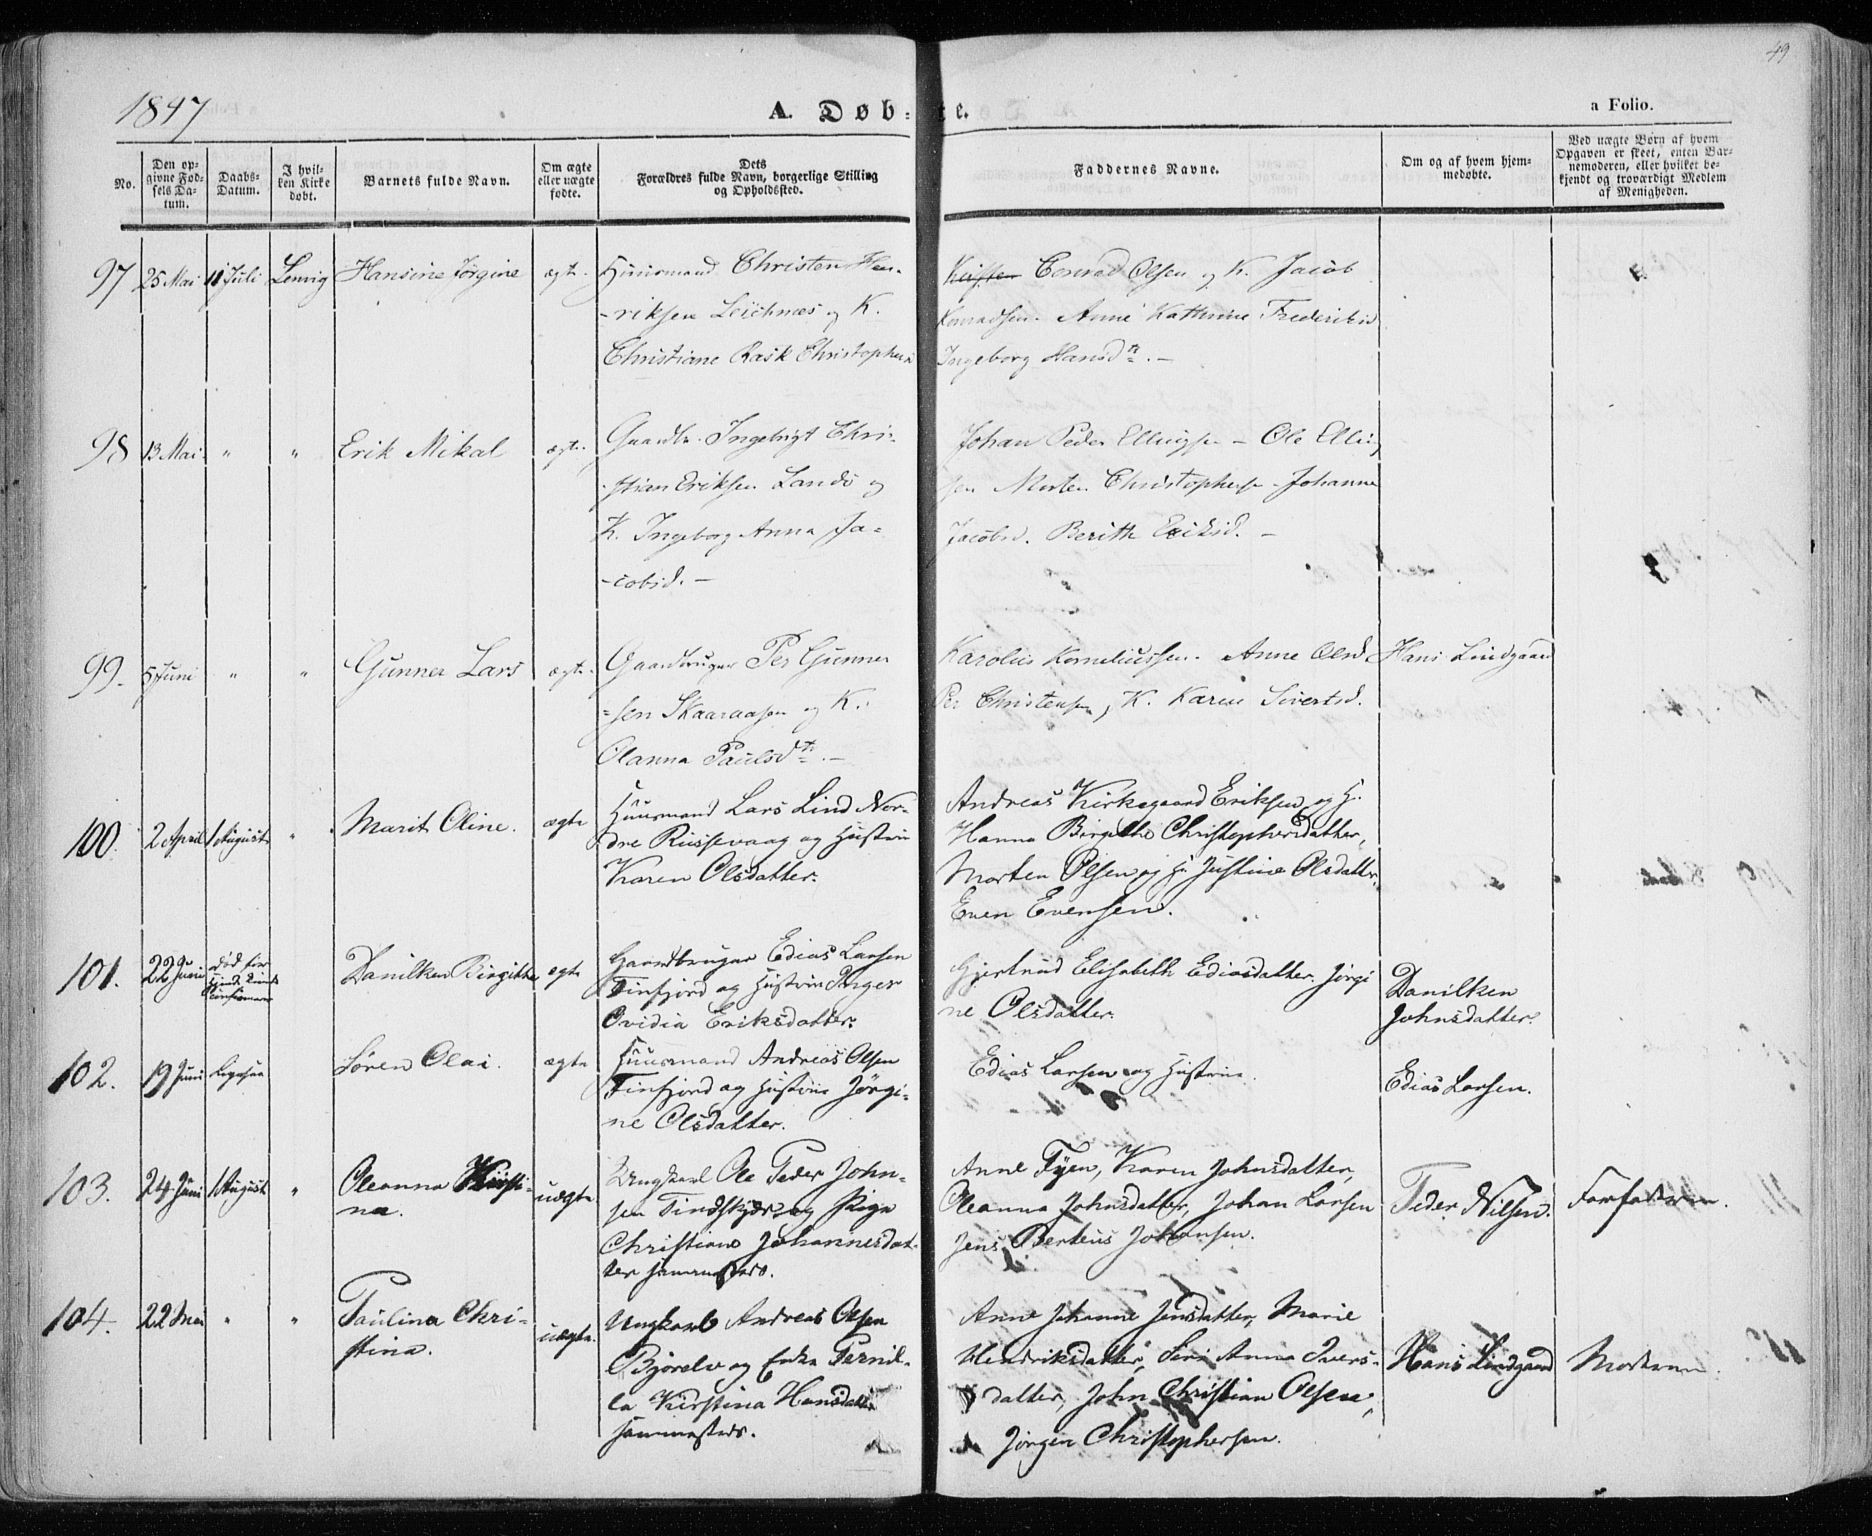 49
1847
A. Døb-te.
a Folio.
No.
Den op-
givne Fød-
sels Da-
tum.
Daabs-
Datum.
I hvil-
ken Kirke
døbt.
Barnets fulde Navn.
Om ægte
eller uægte
fødte.
Dets
Forældres fulde Navn, borgerlige Stilling
og Opholdssted.
Faddernes Navne.
Om og af hvem hjem-
medøbte.
Ved uægte Børn af hvem
Opgaven er skeet, enten Bar-
nemoderen, eller hvilket be-
kjendt og troværdigt Medlem
af Menigheden.
97 25 Mai 11 Juli Lenvig Hansine Jørgine ægte.
Huusmand Christen Hen-
-riksen Leichnæs og K.
Christiane Rask Christophers
Conrad Olsen og K. Jacob
Konradsen. Anne Kathrine Frederiksd
Ingeborg Hansdtr. -
98 13 Mai " " Erik Mikal ægte.
Gaardbr. Ingebrigt Chri-
-stian Eriksen Sandø og
K. Ingeborg Anna Ja-
-cobsd. -
Johan Peder Ellingsen - Ole Elling
sen Morten Christophersen - Johanna
Jacobsd. Berith Eriksd. -
99. 5 Juni " " Gunner Lars ægte.
Gaardbruger Per Gunner
-sen Skaaraasen og K.
Olanna Paulsdtr. -
Karolius Korneliussen. Anne Olsd
Per Christensen, K. Karen Sivertsd.
Hans Lindgaard
100. 2 April 1 August " Marit Oline. ægte
Huusmand Lars Lind Nor-
dre Russevaag og Hustrue
Karen Olsdatter.
Andreas Kirkegaard Eriksen og H.
Hanna Birgithe Christophersdatter,
Morten Olsen og H. Justine Olsdatter,
Even Evensen.
101. 22 Juni død før
Danilken Birgitte ægte
Gaardbruger Edias Larsen
Finfjord og Hustrue Inger
Ovidia Eriksdatter.
Gjertrud Elisabeth Ediasdatter. Jørgi
ne Olsdatter.
Danilken
Johnsdatter.
102. 19 Juni ligesaa Søren Olai. ægte
Huusmand Andreas Olsen
Finfjord og Hustrue Jørgi-
ne Olsdatter.
Edias Larsen og Hustrue.
Edias Larsen.
103. 24 Juni 1 August " Oleanna Kirsti-
na. uægte
Ungkarl Ole Peder John-
sen Tindskjær og Pige
Christiane Johannesdat-
ter sammesteds.
Anne Fyen, Karen Johnsdatter,
Oleanna Johnsdatter, Johan Larsen
Jens Berteus Johansen.
Peder Nilsen.
Farfaderen.
104. 22 Mai " " Paulina Chri-
stina. uægte.
Ungkarl Andreas Olsen
Bjørelv og Enke Pernil-
la Kirstina Hansdatter
sammesteds.
Anne Johanne Jensdatter, Marie
Hendriksdatter, Siri Anna Ivers-
datter, John Christian Olsen,
Jørgen Christophersen.
Hans Lindgaard
Moderen.